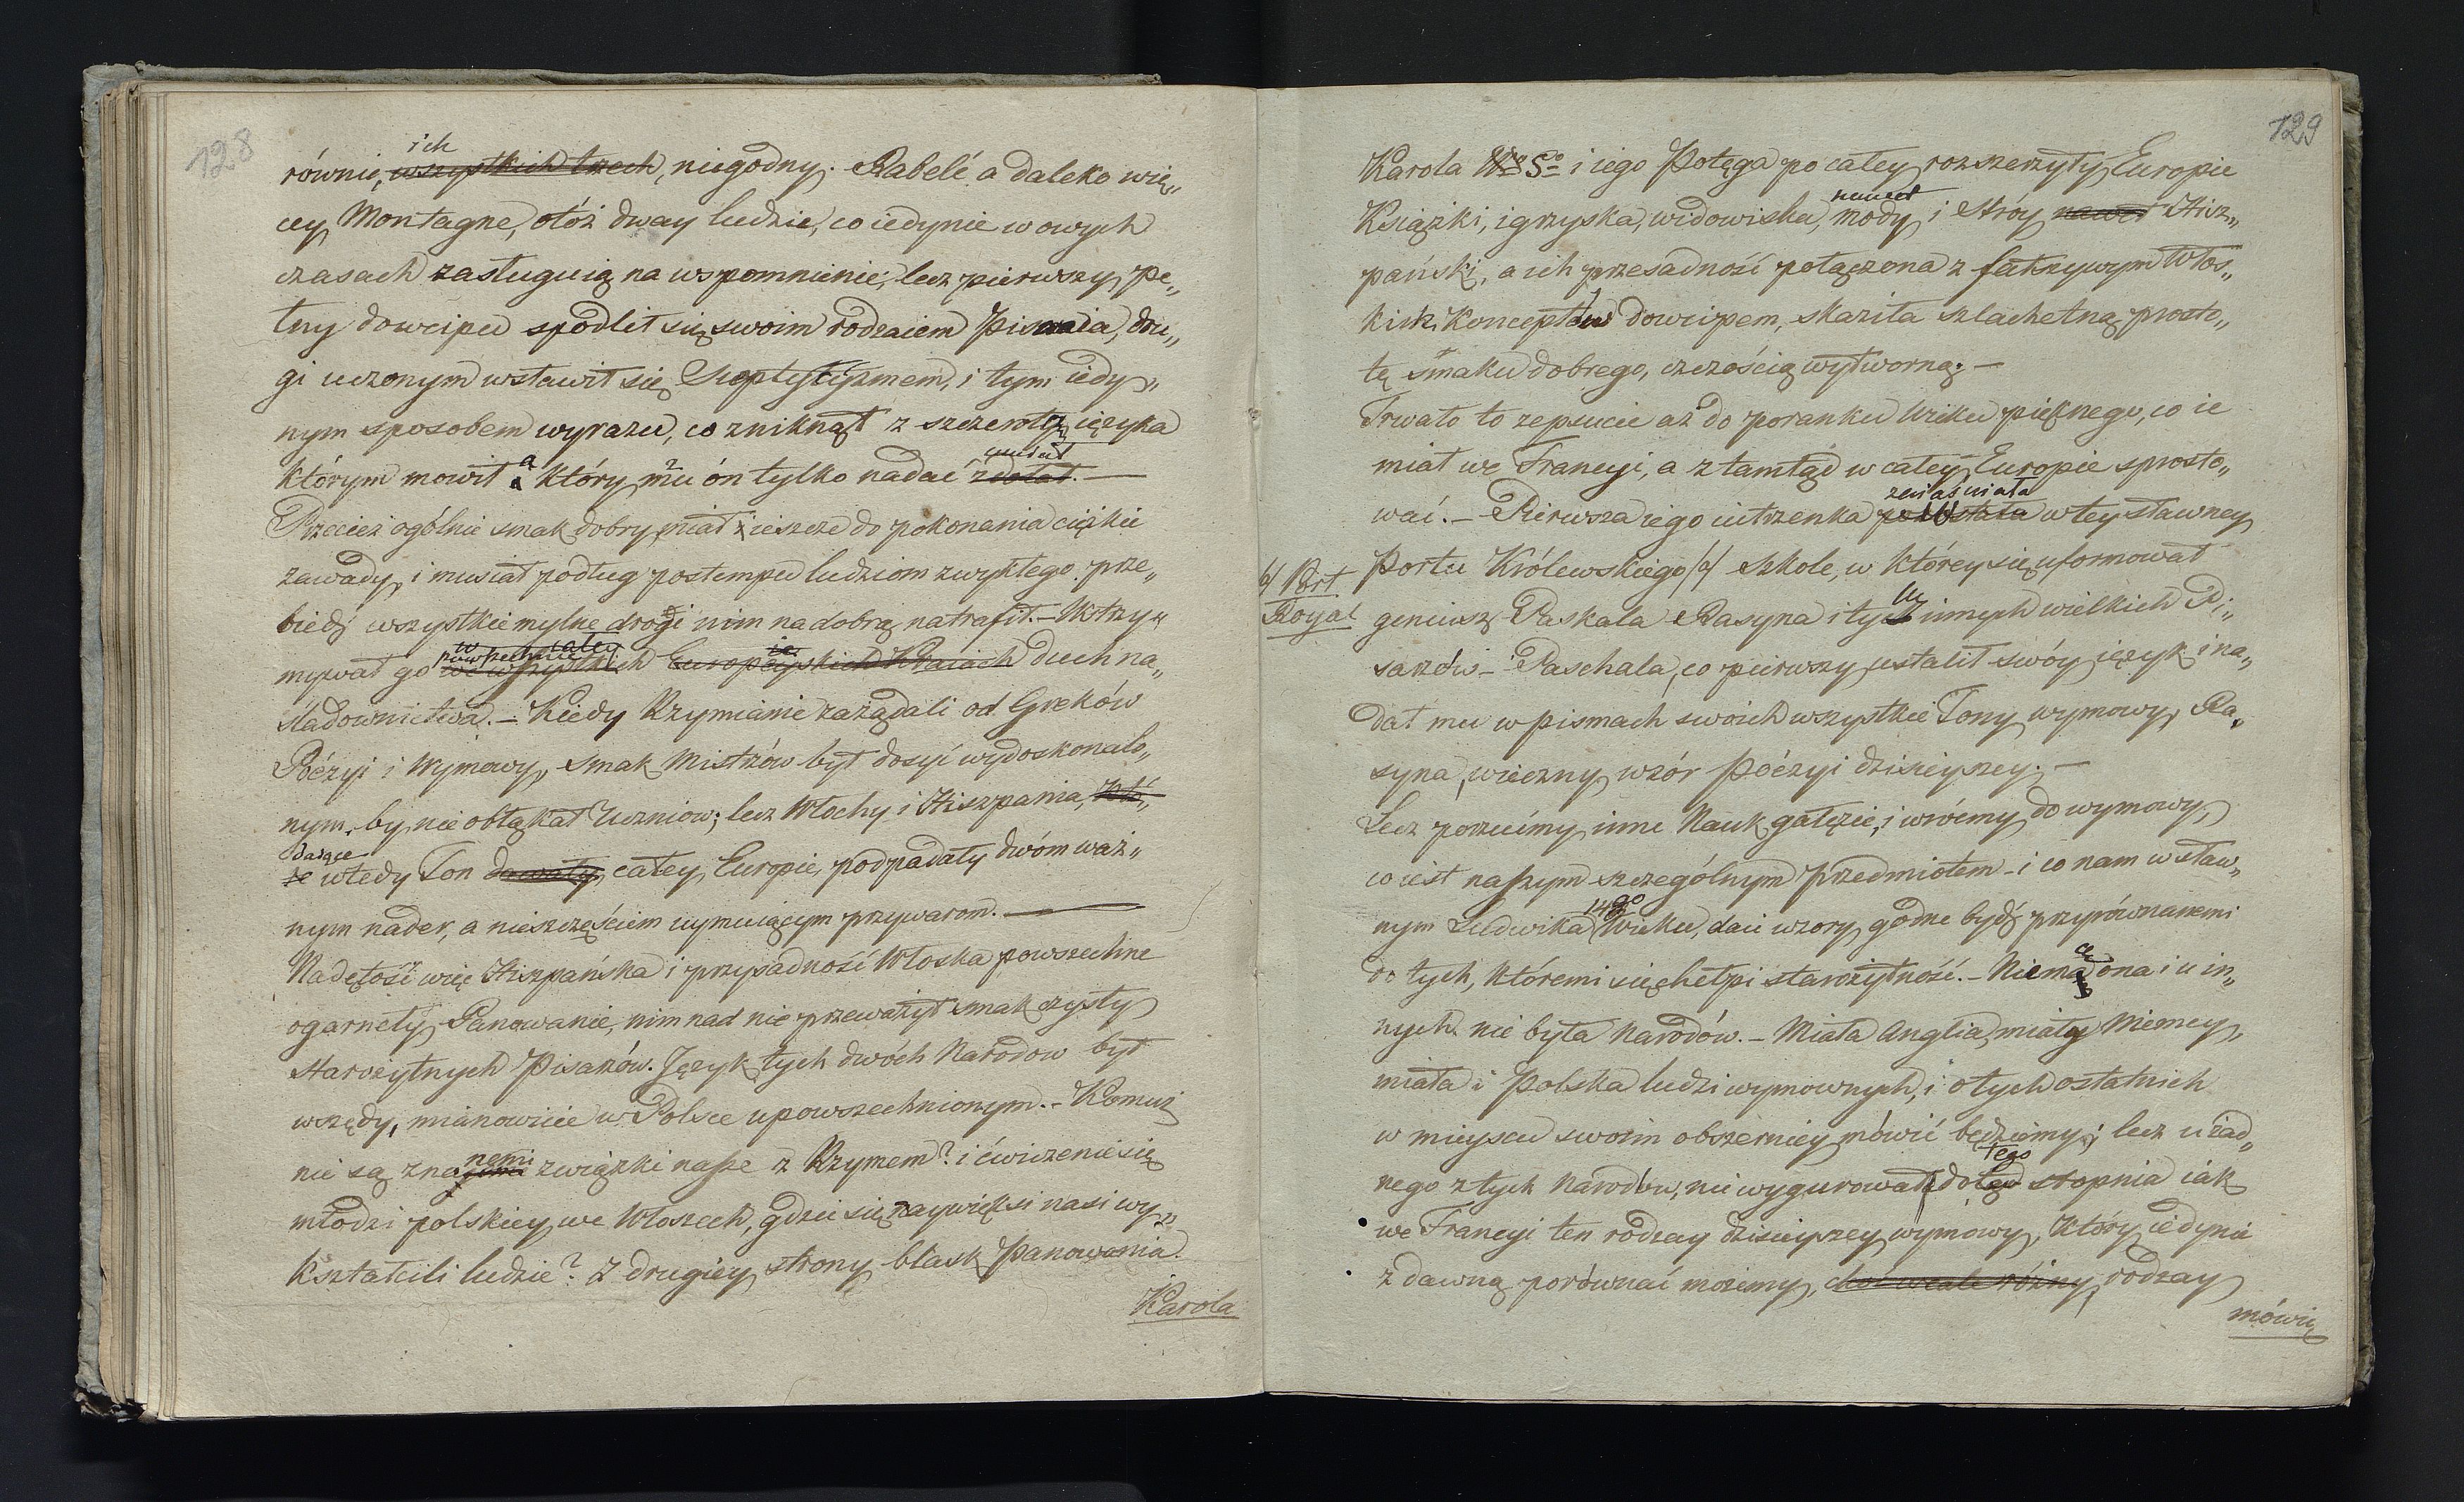 128
ich
równie, wszystkich trzech, niegodny. Rabelé a daleko wię„
cey Montagne, otóż dway ludzie, co iedynie w owych
czasach zasługuią na wspomnienie, lecz pierwszy, peł„
ny dowcipu spodlił się swoim rodzaiem pisania, dru„
gi uczonym wsławił się Sceptycyzmem, i tym iedy„
nym sposobem wyrazu, co zniknął z szczerotą ięzyka
umiał
którym mowił a który mu ón tylko nadać zdołał. —
Przecież ogólnie smak dobry miał ieszcze do pokonania ciężkie
zawady, i musiał podług postempu ludziom zwykłego prze„
biedz wszystkie mylne drogi nim na dobrą natrafił. – Wstrzy„
w całey
powszechnie ie
mywał go we wszystkich Europeyskich Kraiach Duch na„
sladownictwa. – Kiedy Rzymianie zażądali od Greków
Poézyi i Wymowy, smak Mistrzów był dosyć wydoskonalo„
nym, by nie obłąkał Uczniow; lecz Włochy i Hiszpania, któ„
daiące
re wtedy Ton dawały, całey Europie, podpadały dwóm waż„
nym nader, a nieszczęściem uymuiącym przywarom. —
Nadętość więc Hiszpańska i przysadność Włoska powszechne
ogarneły Panowanie, nim nad nie przeważył smak czysty
starożytnych Pisarzów. Język tych dwóch Narodow był
wszędy, mianowicie w Polsce upowszechnionym. – Komuż
nemi
nie są zna związki nasze z Rzymem? i ćwiczenie się
młodzi polskiey we Włoszech, gdzie się naywięksi nasi wy„
kształcili ludzie? Z drugiey strony blask Panowania
Karola
129
Karola 5º i iego Potęga po całey rozszerzyły Europie
nawet
Książki, igrzyska, widowiska, mody i stróy nawet Hisz„
pański, a ich przesadność połączona z fałszywym Włos„
kich Konceptów dowcipem, skaziła szlachetną prosto„
tę smaku dobrego, czczością wytworną. —
Trwało to zepsucie aż do poranku Wieku pięknego, co ie
miał we Francyi, a z tamtąd w całey Europie sprosto„
zaiaśniała
wać. – Pierwsza iego iutrzenka powstała w tey sławney
b/ Port
Royal
Portu Królewskiego /b/ Szkole, w którey się uformował
lu
geniusz Paskala Rasyna i tylu innych wielkich Pi„
sarzów – Paschala, co pierwszy ustalił swóy ięzyk i na„
dał mu w pismach swoich wszystkie Tony wymowy, Ra„
syna, wieczny wzór Poézyi dzisieyszey. —
Lecz porzućmy inne Nauk gałęzie, i wróćmy do wymowy,
co iest naszym szczególnym Przedmiotem – i co nam w sław„
14go
nym Ludwika Wieku, daie wzory godne bydź przyrównanemi
do tych, któremi się chełpi starożytność. – Niemą ona i u in„
nych nie była Narodów. – Miała Anglia, miały Niemcy,
miała i Polska ludzi wymownych, i o tych ostatnich
w mieyscu swoim obszerniey mówić będziemy; lecz u żad„
tego
nego z tych Narodów, nie wygurował do tąd stopnia iak
we Francyi ten rodzay dzisieyszey wymowy, który iedynie
z dawną porównać możemy, choć wcale różny, rodzay
mówię